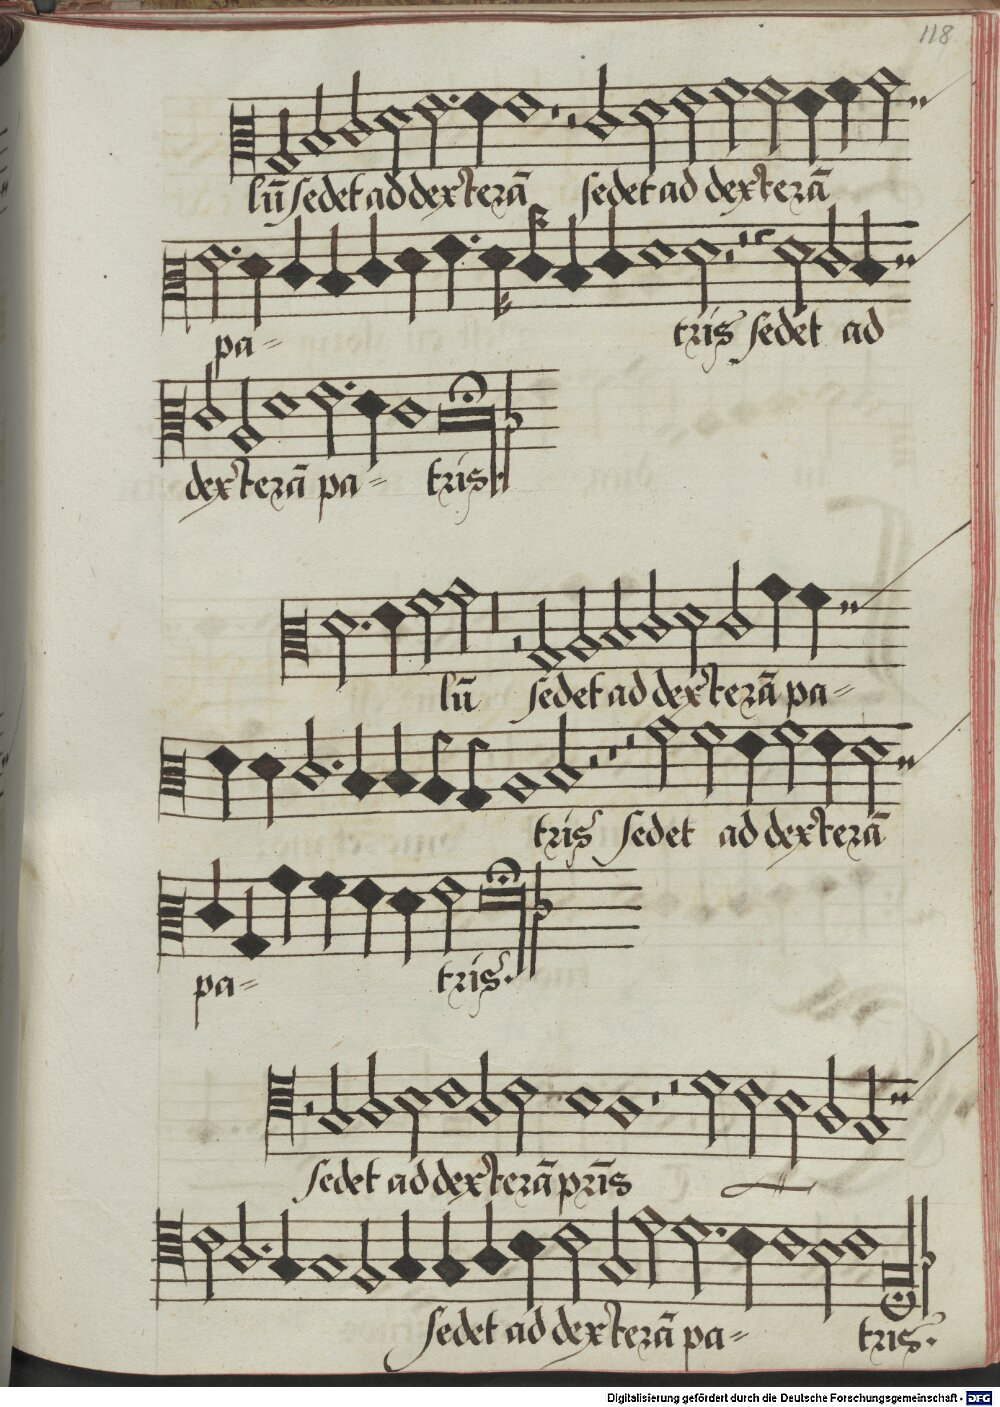 118
lū sedet ad dexterā sedet ad dexterā
pa- tris sedet ad
dexterā pa- tris
lū sedet ad dexterā pa-
tris sedet ad dexterā
pa- tris.
sedet ad dexterā pr̄is
sedet ad dexterā pa- tris.
Digitalisierung gefördert durch die Deutsche Forschungsgemeinschaft - DFG